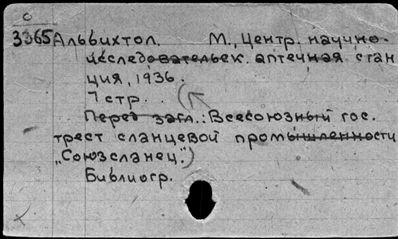 С
3365 Альбихтол. М., Центр. научно-
исследовательск. аптечная стан
ция, 1936.
7 стр.
(Перед загл.: Всесоюзный гос.
трест сланцевой промышленности
„Союзсланец.")
Библиогр.